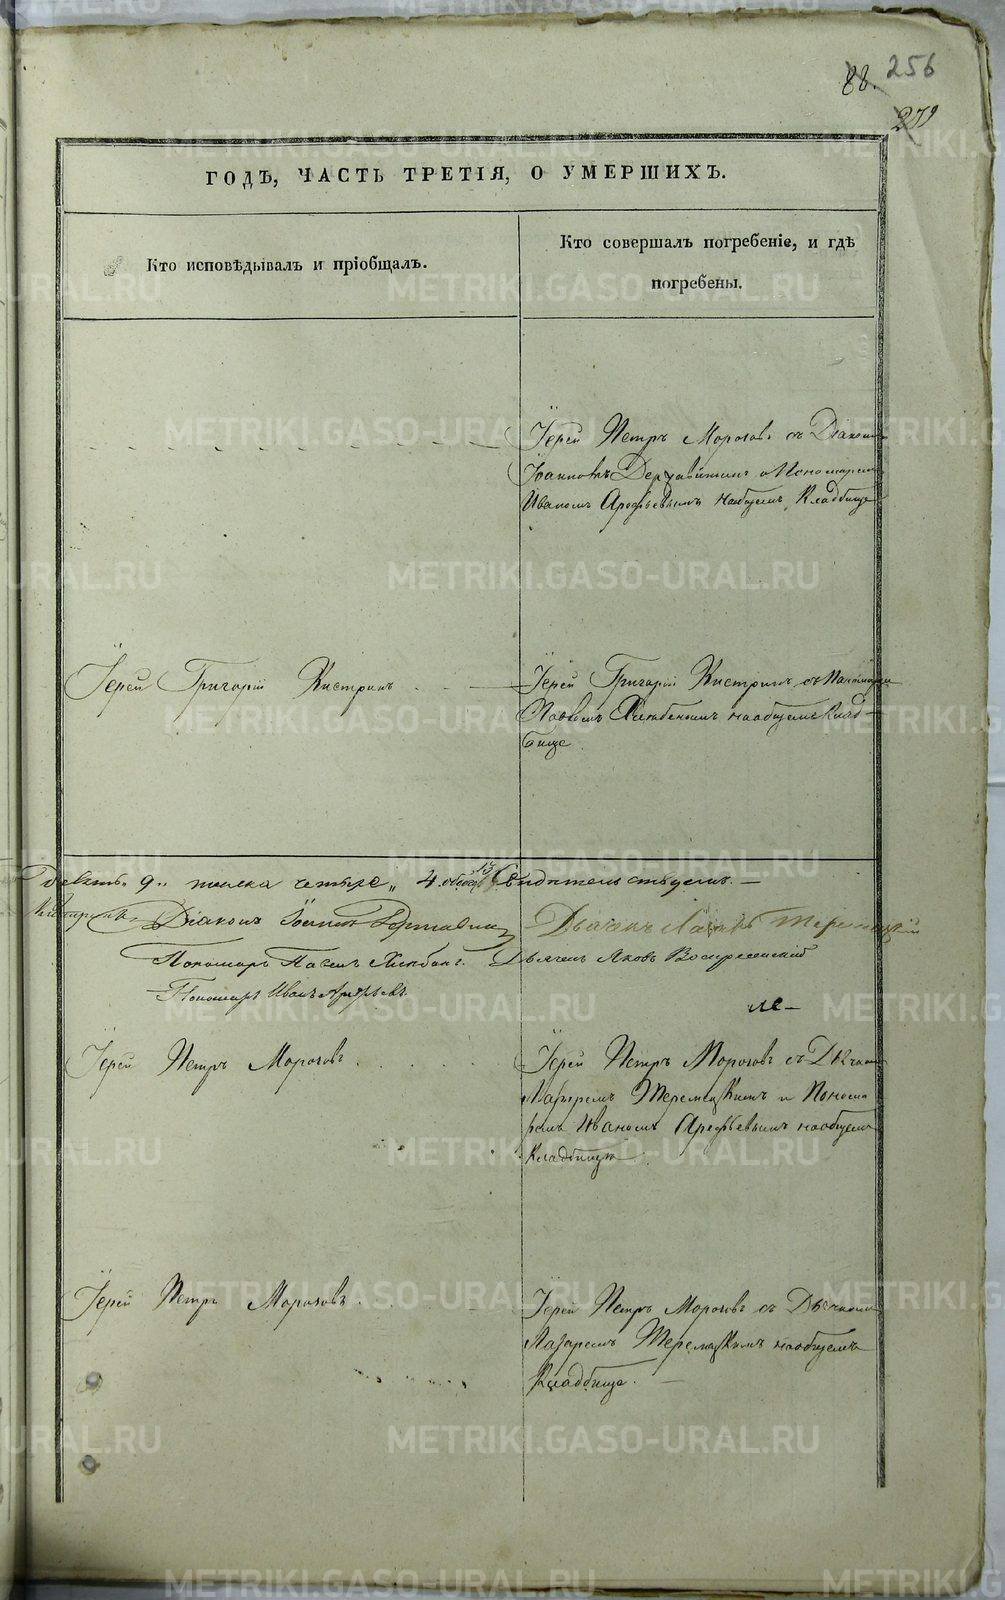 88. 256
279
ГОДЪ, ЧАСТЬ ТРЕТІЯ, О УМЕРШИХЪ.
Кто исповѣдывалъ и пріобщалъ.
Кто совершалъ погребеніе, и гдѣ
погребены.
Іерей Петръ Морозовъ съ Діакономъ
Іоанномъ Державинымъ и Пономаремъ
Иваномъ Арефьевымъ на общемъ Кладбище
Іерей Григорій Кистринъ
Іерей Григорій Кистринъ съ Пономаремъ
Павломъ на общемъ Клад-
бище
девять 9 четыре 4. обоего 13 Свидѣтельствуемъ. —
Діаконъ Іоаннъ Державинъ Дьячекъ Лазарь
Пономарь Павелъ Дьячекъ Яковъ Воскресенскій
Пономарь Иванъ Арефьевъ
Іерей Петръ Морозовъ
Іерей Петръ Морозовъ съ Дьячкомъ
Лазаремъ и Понома
ремъ Иваномъ Арефьевымъ на общемъ
Кладбище
Іерей Петръ Морозовъ
Іерей Петръ Морозовъ съ Дьячкомъ
Лазаремъ на общемъ
Кладбище.
METRIKI.GASO-URAL.RU